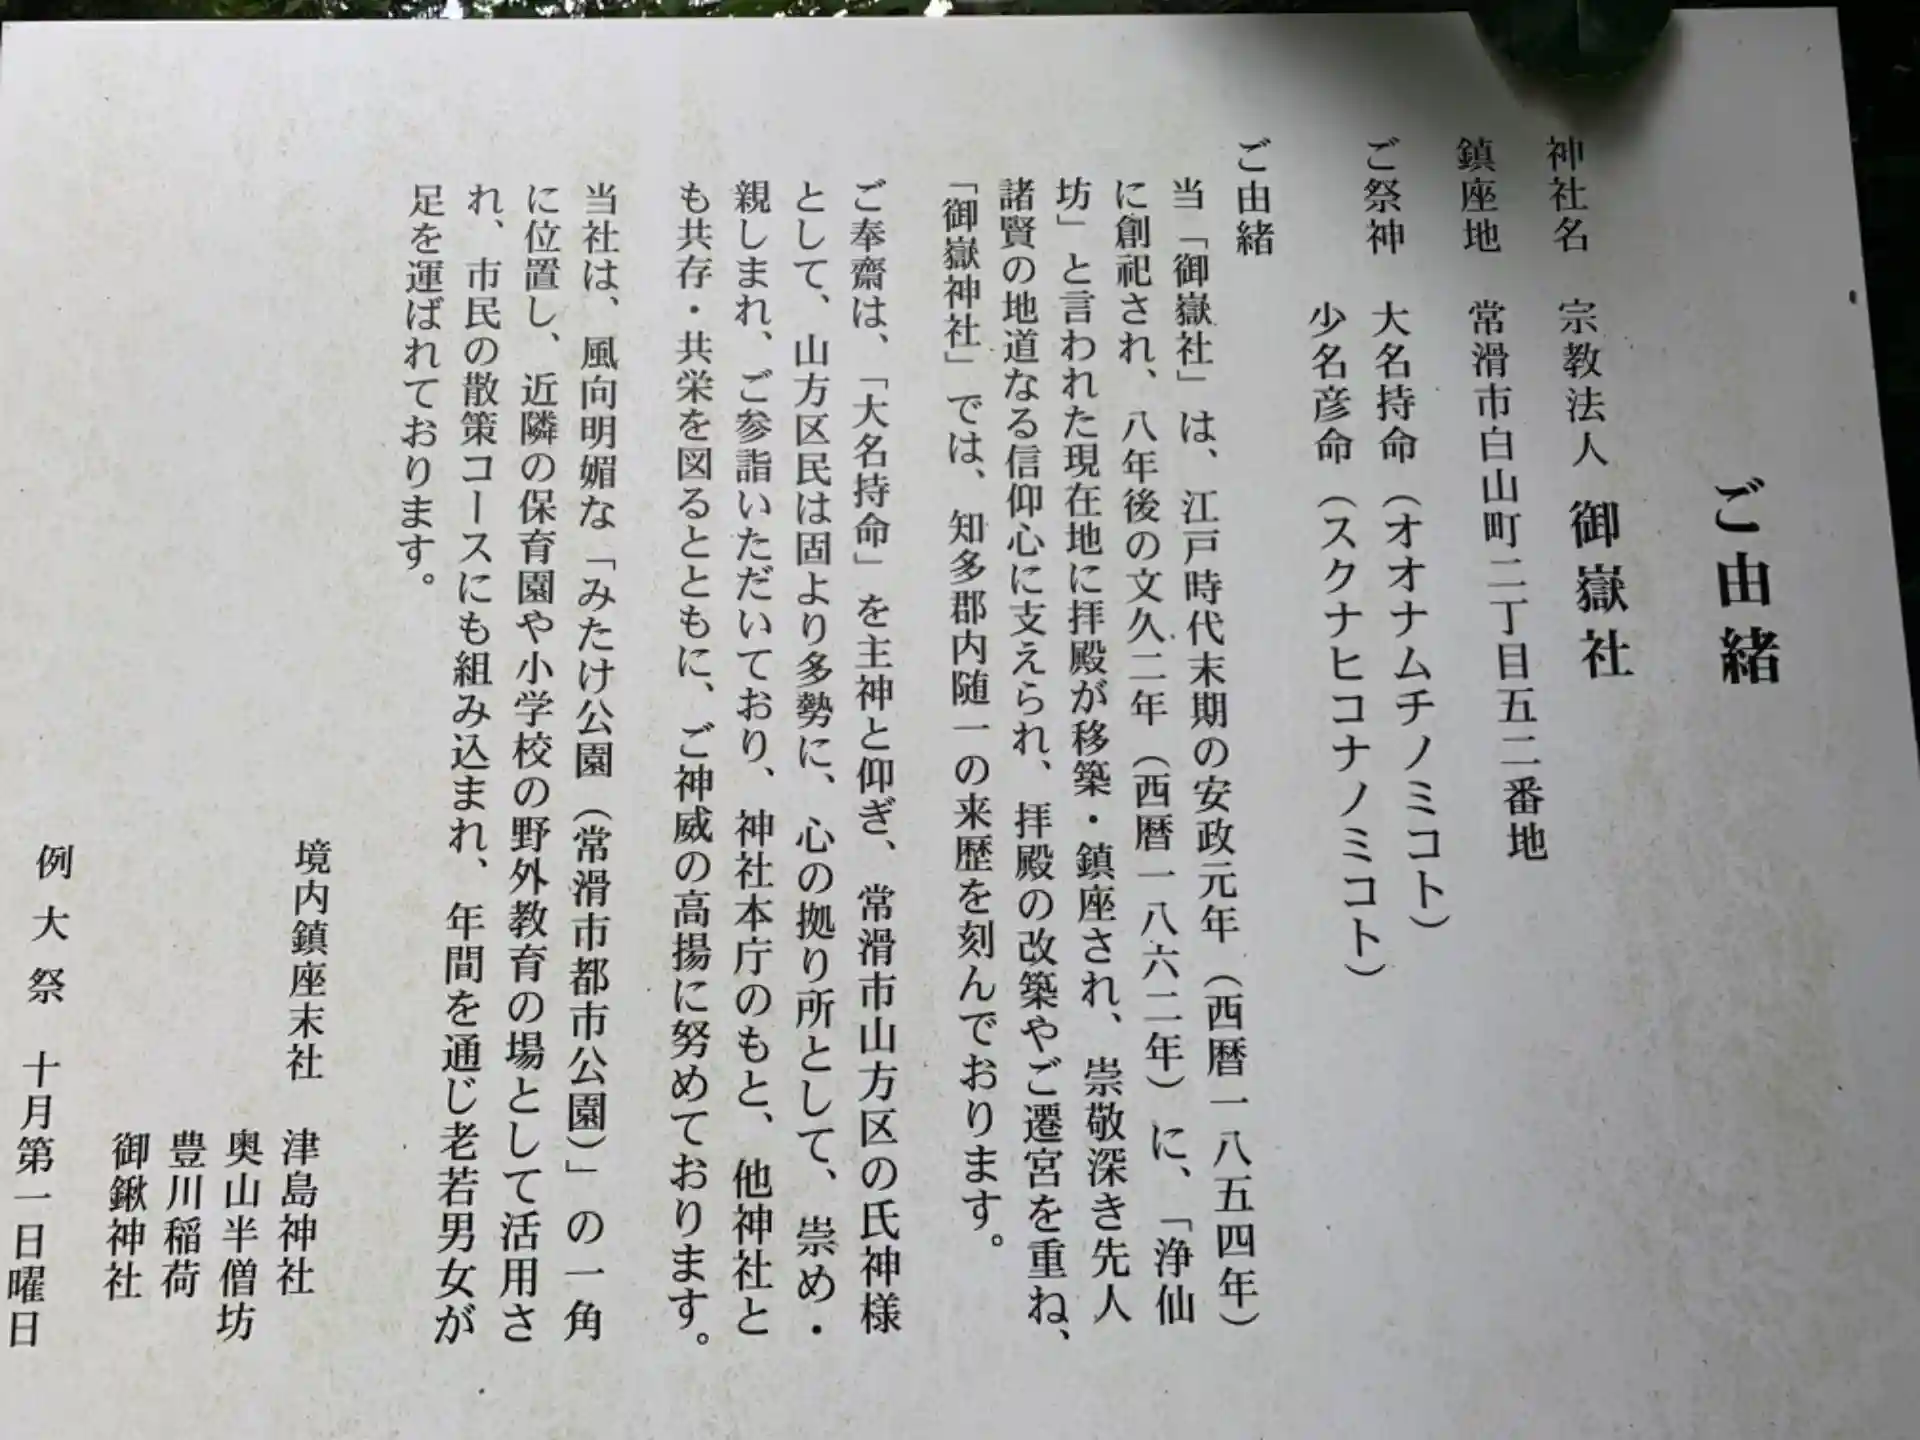 ご由緒
神社名 宗教法人 御嶽社
鎮座地 常滑市白山町二丁目五二番地
ご祭神 大名持命(オオナムチノミコト)
少名彦命(スクナヒコナノミコト)
ご由緒
当「御嶽社」は、江戸時代末期の安政元年(西暦一八五四年)
に創祀され、八年後の文久二年(西暦一八六二年)に、「浄仙
坊」と言われた現在地に拝殿が移築・鎮座され、崇敬深き先人
諸賢の地道なる信仰心に支えられ、拝殿の改築やご遷宮を重ね、
「御嶽神社」では、知多郡内随一の来歴を刻んでおります。
ご奉齋は、「大名持命」を主神と仰ぎ、常滑市山方区の氏神様
として、山方区民は固より多勢に、心の拠り所として、崇め・
親しまれ、ご参詣いただいており、神社本庁のもと、他神社と
も共存・共栄を図るとともに、ご神威の高揚に努めております。
当社は、風向明媚な「みたけ公園(常滑市都市公園)」の一角
に位置し、近隣の保育園や小学校の野外教育の場として活用さ
れ、市民の散策コースにも組み込まれ、年間を通じ老若男女が
足を運ばれております。
境内鎮座末社 津島神社
奥山半僧坊
豊川稲荷
御鍬神社
例大祭 十月第一日曜日